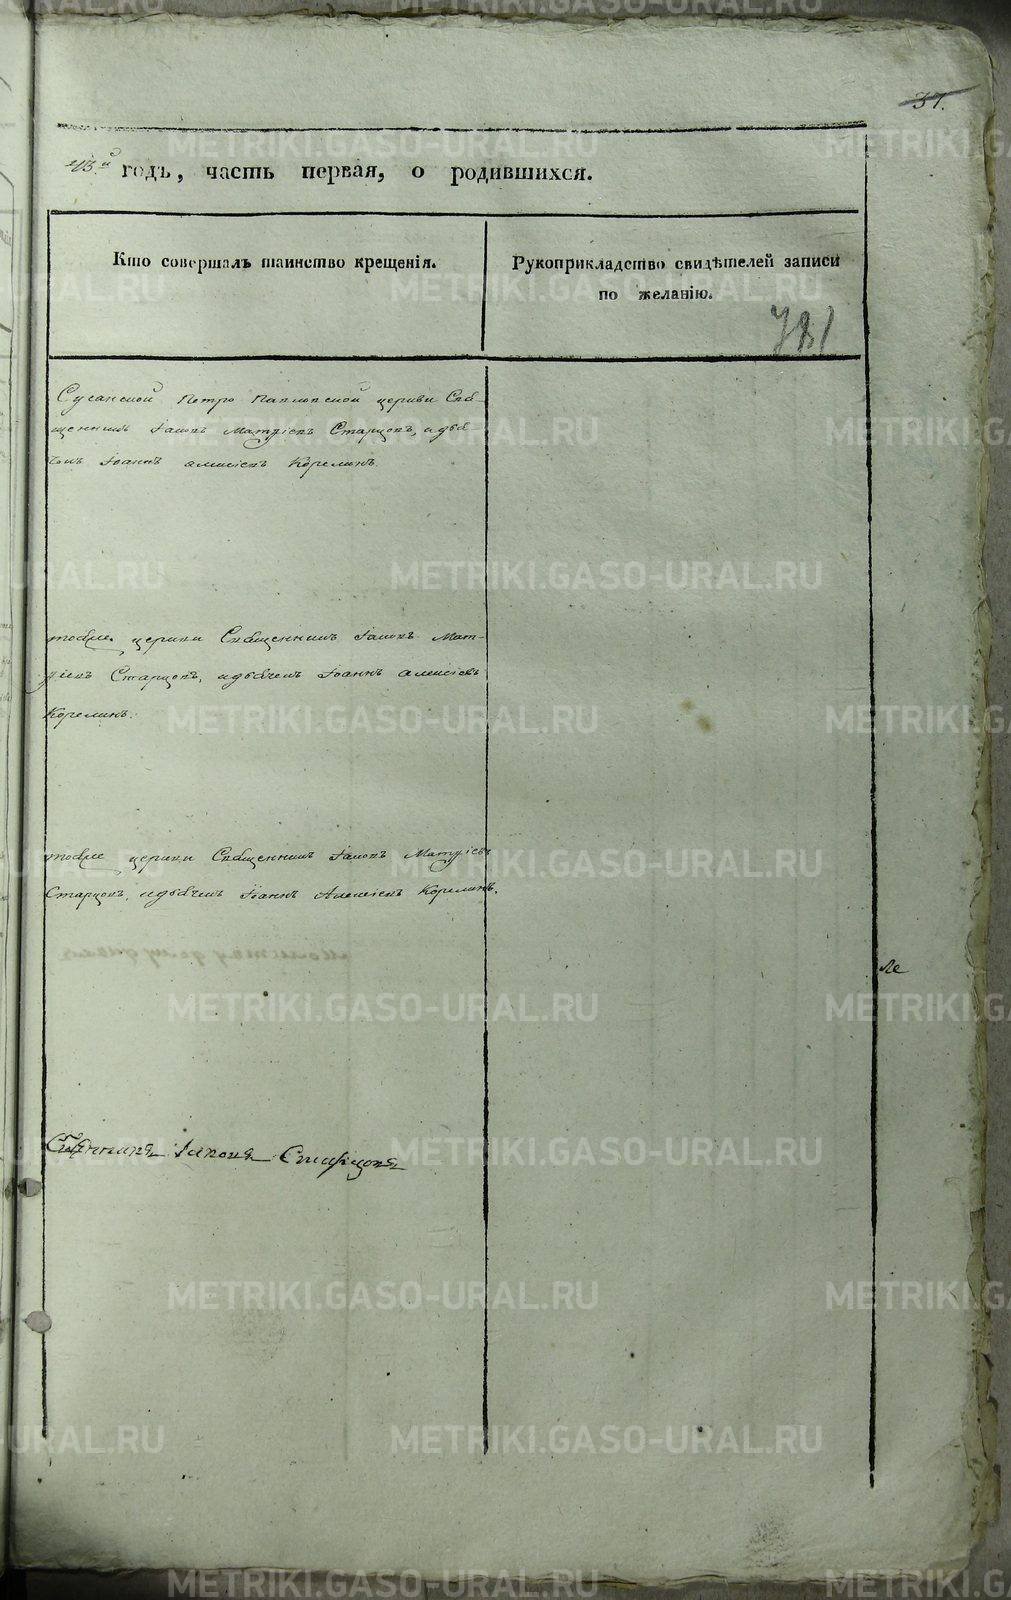 37.
43.й годъ, часть первая, о родившихся.
Кто совершалъ таинство крещенія.
Рукоприкладство свидѣтелей записи
по желанію.
781
Сусанской Петро Павловской церкви Свя-
щенникъ Іаковъ Матѳіевъ Старцовъ, и дья-
чекъ Іоаннъ Алексіевъ Корелинъ.
тояже церкви Священникъ Іаковъ Мат-
ѳіевъ Старцовъ, и дьячекъ Іоаннъ Алексіевъ
Корелинъ.
тояже церкви Священникъ Іаковъ Матѳіевъ
Старцовъ, и дьячекъ Іоаннъ Алексіевъ Корелинъ.
Ле
Священникъ Іаковъ Старцовъ
METRIKI.GASO-URAL.RU